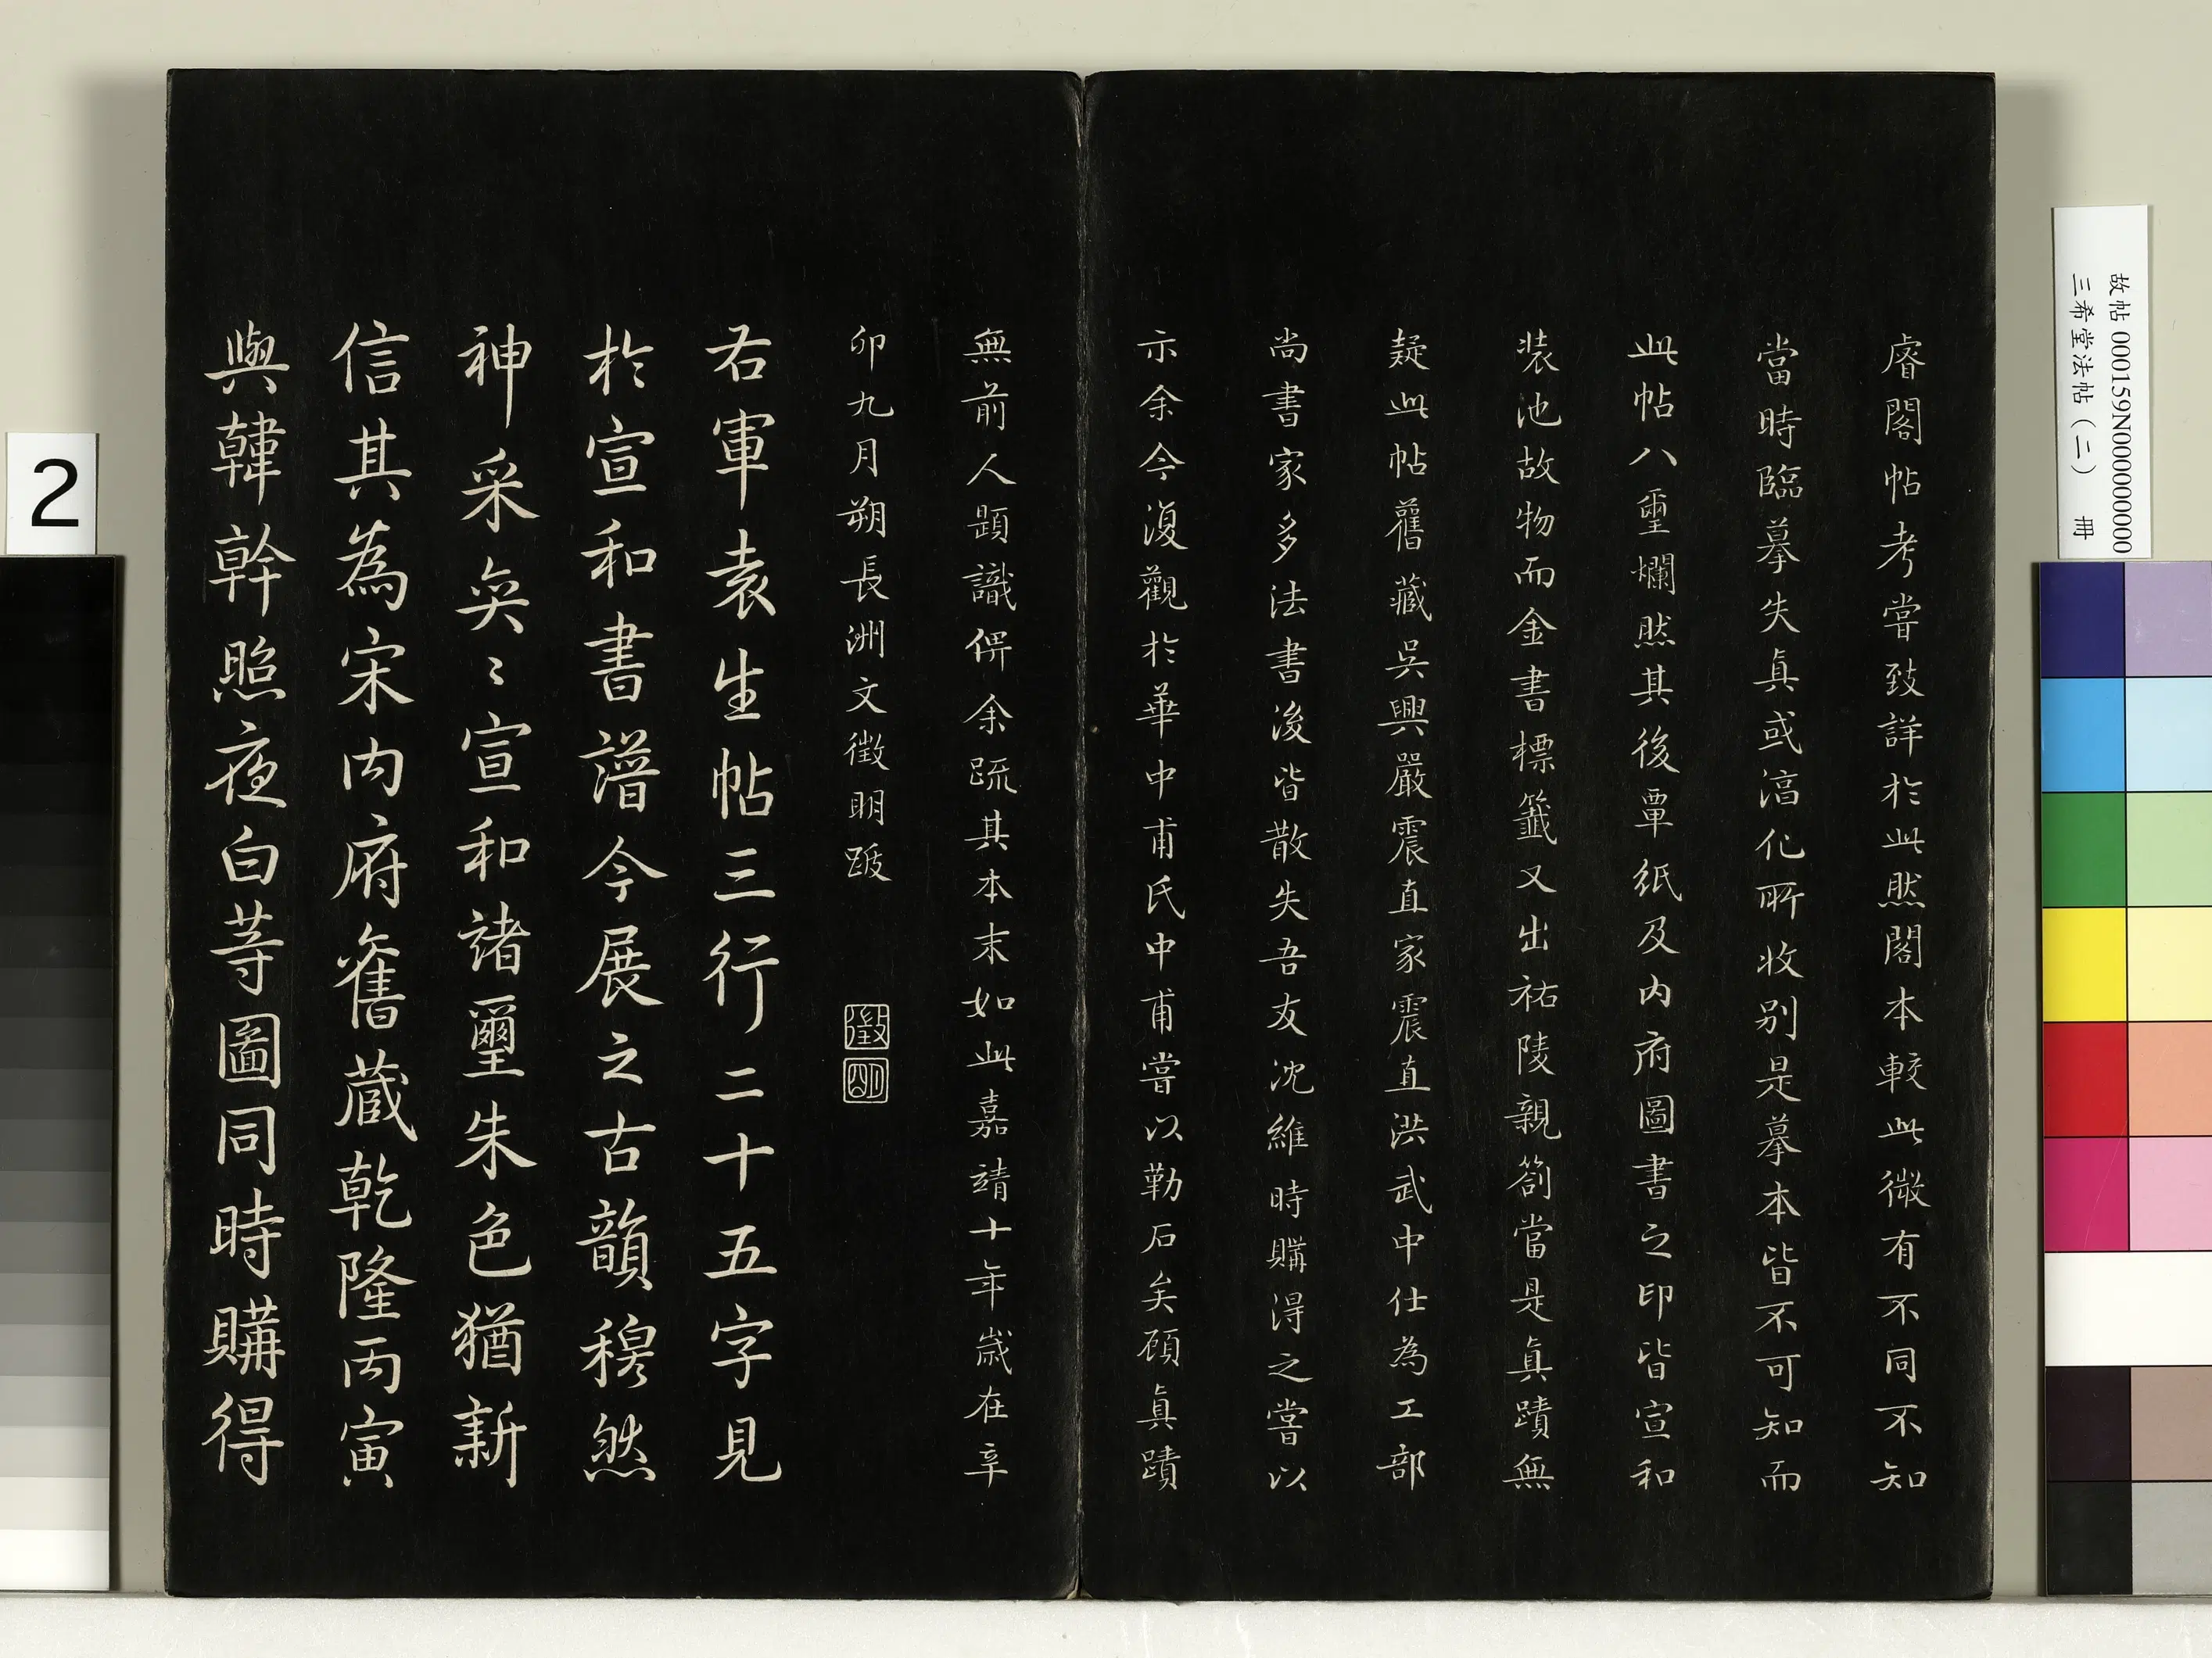 睿閣帖考嘗致詳於此然閣本較此微有不同不知
當時臨摹失真或淳化所收别是摹本皆不可知而
此帖八璽爛然其後覃紙及内府圖書之印皆宣和
裝池故物而金書標籤又出祐陵親劄當是真蹟無
疑此帖舊藏吳興嚴震直家震直洪武中仕為工部
尚書家多法書後皆散失吾友沈維時購得之嘗以
示余今復觀於華中甫氏中甫嘗以勒石矣顧真蹟
無前人題識俾余疏其本末如此嘉靖十年歲在辛
卯九月朔長洲文徵明跋
徵明
右軍袁生帖三行二十五字見
於宣和書譜今展之古韻穆然
神采奕〻宣和諸璽朱色猶新
信其為宋内府舊蔵乾隆丙寅
與韓幹照夜白等圖同時購得
故帖 000159N000000000
三希堂法帖(二) 冊
2